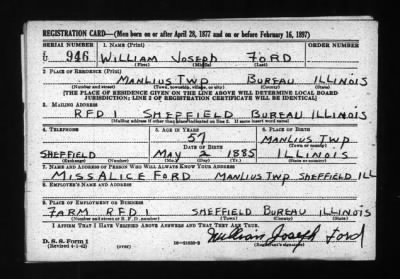 REGISTRATION CARD—(Men born on or after April 28, 1877 and on or before February 16, 1897)
SERIAL NUMBER 1. NAME (Print) ORDER NUMBER
U 946 WILLIAM JOSEPH FORD
(First) (Middle) (Last)
2. PLACE OF RESIDENCE (Print)
MANLIUS TWP BUREAU ILLINOIS
(Number and street) (Town, township, village, or city) (County) (State)
[THE PLACE OF RESIDENCE GIVEN ON THE LINE ABOVE WILL DETERMINE LOCAL BOARD
JURISDICTION; LINE 2 OF REGISTRATION CERTIFICATE WILL BE IDENTICAL]
3. MAILING ADDRESS
RFD 1 SHEFFIELD BUREAU ILLINOIS
[Mailing address if other than place indicated on line 2. If same insert word same]
4. TELEPHONE 5. AGE IN YEARS 6. PLACE OF BIRTH
57 MANLIUS TWP
DATE OF BIRTH (Town or county)
SHEFFIELD MAY 2 1885 ILLINOIS
(Exchange) (Number) (Mo.) (Day) (Yr.) (State or country)
7. NAME AND ADDRESS OF PERSON WHO WILL ALWAYS KNOW YOUR ADDRESS
MISS ALICE FORD MANLIUS TWP SHEFFIELD ILL
8. EMPLOYER'S NAME AND ADDRESS
9. PLACE OF EMPLOYMENT OR BUSINESS
FARM RFD 1 SHEFFIELD BUREAU ILLINOIS
(Number and street or R. F. D. number) (Town) (County) (State)
I AFFIRM THAT I HAVE VERIFIED ABOVE ANSWERS AND THAT THEY ARE TRUE.
D. S. S. Form 1 William Joseph Ford
(Revised 4-1-42) (over) 16—21630-2 (Registrant's signature)